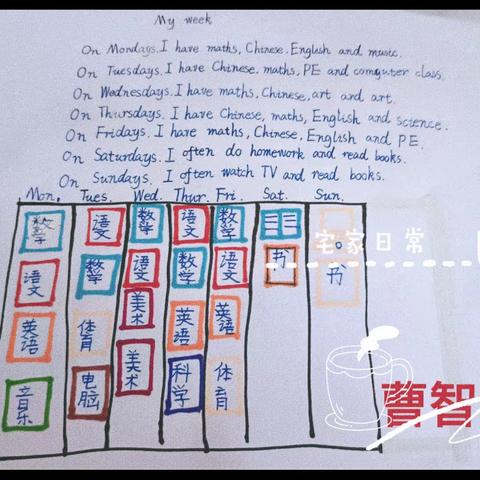 My week
On Mondays. I have maths, Chinese, English and music.
On Tuesdays. I have Chinese, maths, PE and computer class.
On Wednesdays. I have maths, Chinese, art and art.
On Thursdays. I have Chinese, maths, English and science.
On Fridays. I have maths, Chinese, English and PE.
On Saturdays. I often do homework and read books.
On Sundays. I often watch TV and read books.
Mon. Tues. Wed. Thur. Fri. Sat. Sun.
数学 语文 数学 语文 数学
语文 数学 语文 数学 语文 书 书
英语 体育 美术 英语 英语
音乐 电脑 美术 科学 体育
宅家日常
曹智